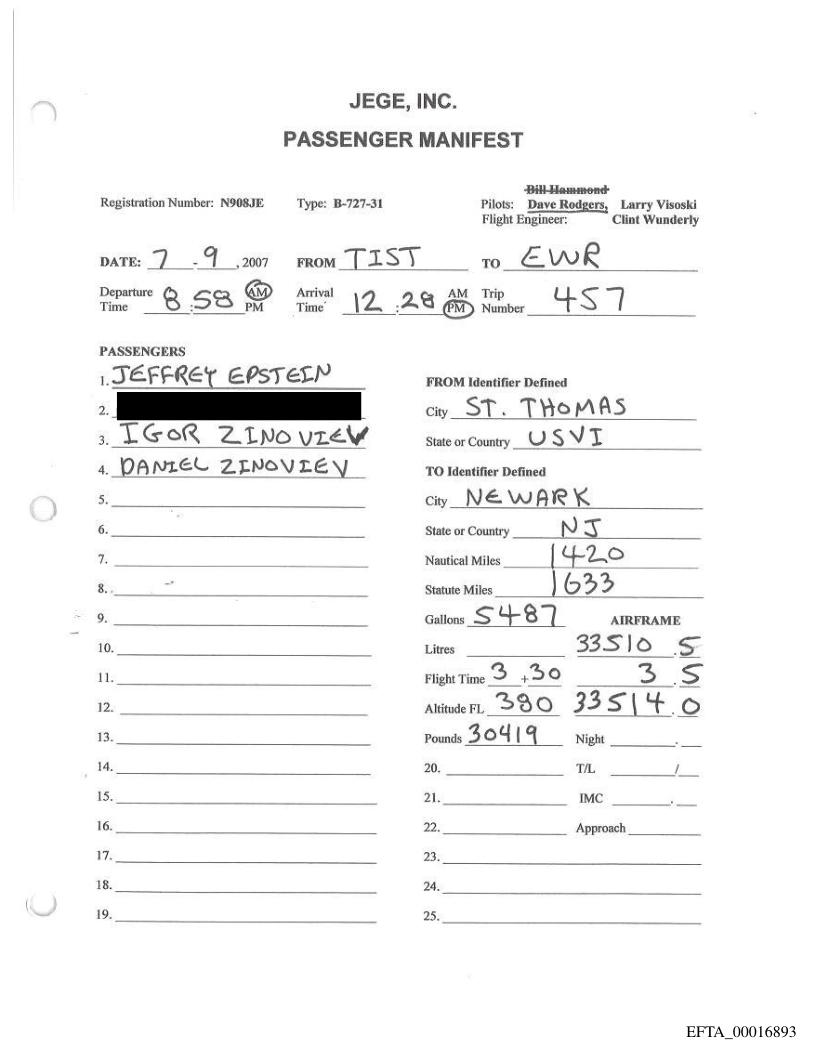 JEGE, INC.
PASSENGER MANIFEST
Bill Hammond
Registration Number: N908JE Type: B-727-31 Pilots: Dave Rodgers, Larry Visoski
Flight Engineer: Clint Wunderly
DATE: 7 - 9, 2007 FROM TIST TO EWR
Departure Time 8:58 AM PM Arrival Time 12:28 AM PM Trip Number 457
PASSENGERS
1. JEFFREY EPSTEIN
2.
3. IGOR ZINOVIEV
4. DANIEL ZINOVIEV
5.
6.
7.
8.
9.
10.
11.
12.
13.
14.
15.
16.
17.
18.
19.
FROM Identifier Defined
City ST. THOMAS
State or Country USVI
TO Identifier Defined
City NEWARK
State or Country NJ
Nautical Miles 1420
Statute Miles 1633
Gallons 5487 AIRFRAME
Litres 33510.5
Flight Time 3+30 3.5
Altitude FL 380 33514.0
Pounds 30419 Night .
20. T/L /
21. IMC .
22. Approach
23.
24.
25.
EFTA_00016893